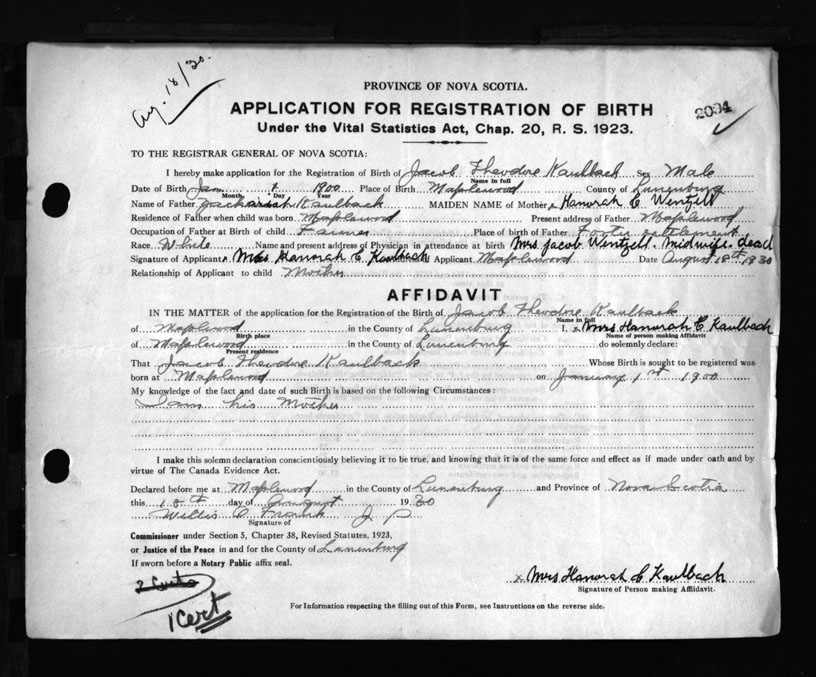 Aug. 18/30.
PROVINCE OF NOVA SCOTIA.
APPLICATION FOR REGISTRATION OF BIRTH
2094
Under the Vital Statistics Act, Chap. 20, R. S. 1923.
TO THE REGISTRAR GENERAL OF NOVA SCOTIA:
I hereby make application for the Registration of Birth of Jacob Theodore Kaulback Sex Male
Name in full
Date of Birth Jan 1 1900 Place of Birth Maplewood County of Lunenburg
Month Day Year
Name of Father Zachariah Kaulback MAIDEN NAME of Mother x Hanorah C Wentzell
Residence of Father when child was born Maplewood Present address of Father Maplewood
Occupation of Father at Birth of child Farmer Place of birth of Father Foots settlement
Race White Name and present address of Physician in attendance at birth Mrs Jacob Wentzell. midwife. dead
Signature of Applicant x Mrs Hanorah C Kaulback Applicant Maplewood Date August 18th 1930
Relationship of Applicant to child Mother
AFFIDAVIT
IN THE MATTER of the application for the Registration of the Birth of Jacob Theodore Kaulback
Name in full
of Maplewood in the County of Lunenburg I, x Mrs Hanorah C Kaulback
Birth place Name of person making Affidavit
of Maplewood in the County of Lunenburg do solemnly declare:
Present residence
That Jacob Theodore Kaulback Whose Birth is sought to be registered was
born at Maplewood on January 1st 1900
My knowledge of the fact and date of such Birth is based on the following Circumstances:
I am his Mother
I make this solemn declaration conscientiously believing it to be true, and knowing that it is of the same force and effect as if made under oath and by
virtue of The Canada Evidence Act.
Declared before me at Maplewood in the County of Lunenburg and Province of Nova Scotia
this 18th day of August 1930
Willis O Frank J. P.
Signature of
Commissioner under Section 5, Chapter 38, Revised Statutes, 1923,
or Justice of the Peace in and for the County of Lunenburg
If sworn before a Notary Public affix seal.
x Mrs Hanorah C Kaulback
Signature of Person making Affidavit.
1 Cert
For Information respecting the filling out of this Form, see Instructions on the reverse side.